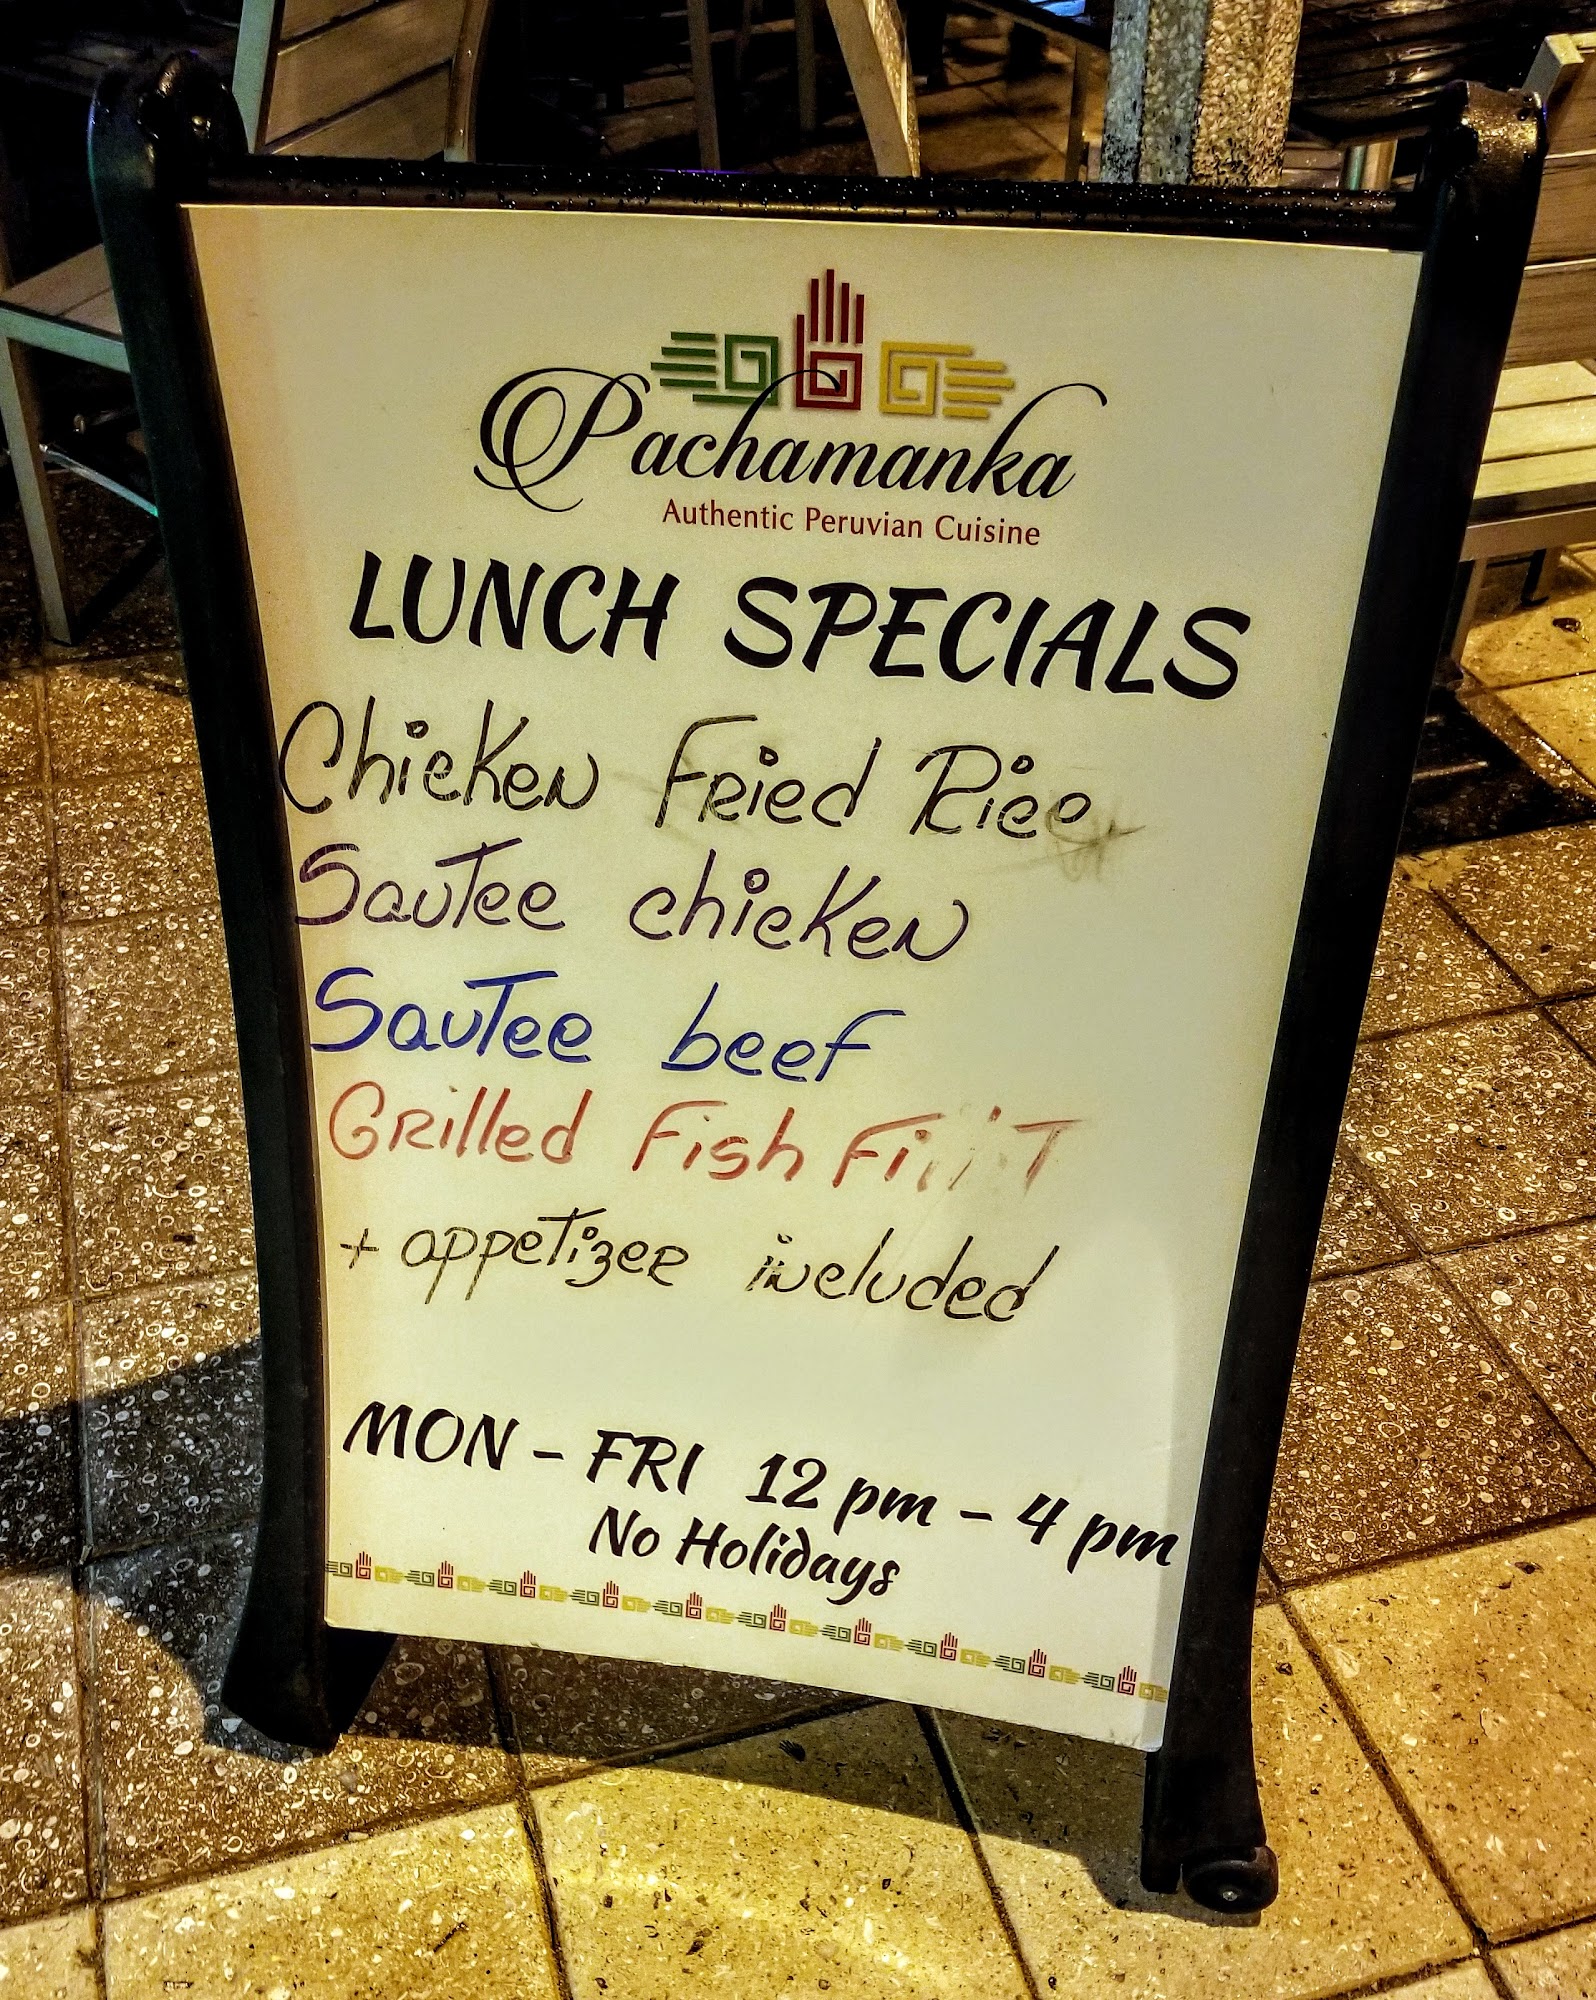 Pachamanka
Authentic Peruvian Cuisine
LUNCH SPECIALS
Chicken Fried Rice
Sautee chicken
Sautee beef
Grilled Fish
+ appetizer included
MON - FRI 12 pm - 4 pm
No Holidays